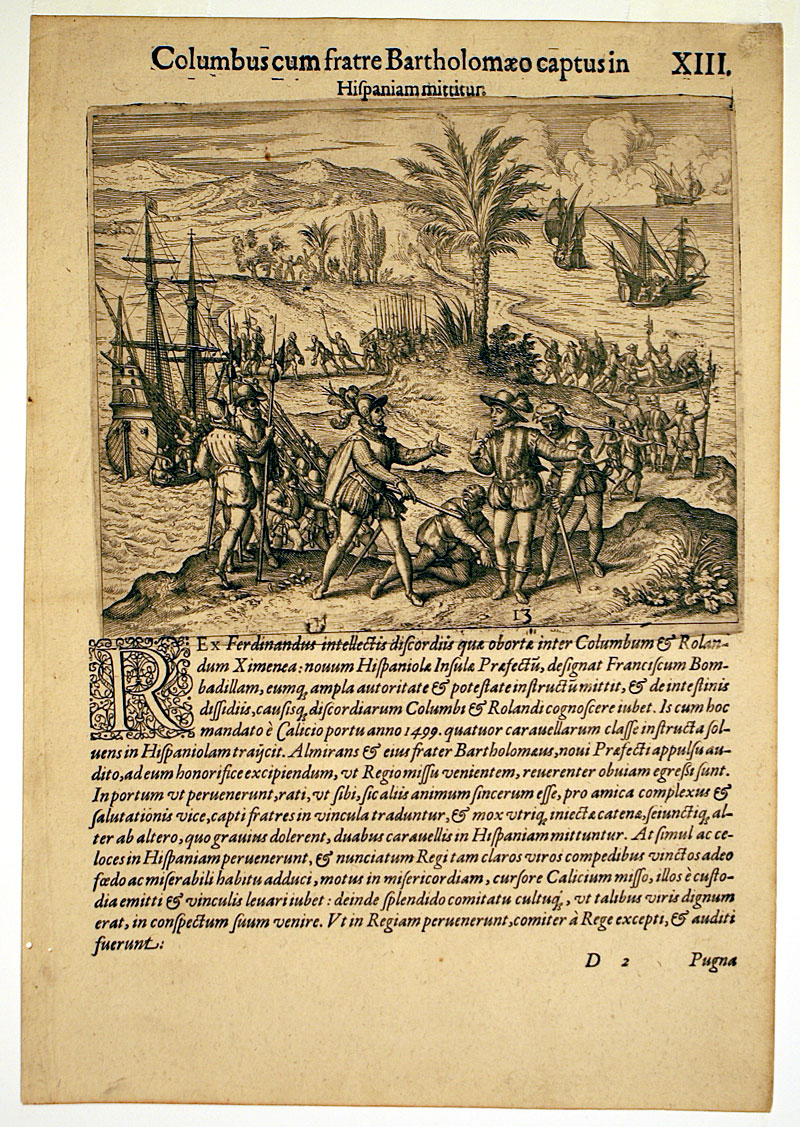 Columbus cum fratre Bartholomæo captus in XIII.
Hiſpaniam mittitur.
13
REx Ferdinandus intellectis diſcordiis quæ obortæ inter Columbum & Rolan-
dum Ximenea: nouum Hiſpaniolæ Inſulæ Præfectū, deſignat Franciſcum Bom-
badillam, eumq; ampla autoritate & poteſtate inſtructū mittit, & de inteſtinis
diſſidiis, cauſisq; diſcordiarum Columbi & Rolandi cognoſcere iubet. Is cum hoc
mandato è Calicio portu anno 1499. quatuor carauellarum claſſe inſtructa ſol-
uens in Hiſpaniolam traijcit. Almirans & eius frater Bartholomæus, noui Præfecti appulſu au-
dito, ad eum honorifice excipiendum, vt Regio miſſu venientem, reuerenter obuiam egreſſi ſunt.
In portum vt peruenerunt, rati, vt ſibi, ſic aliis animum ſincerum eſſe, pro amica complexus &
ſalutationis vice, capti fratres in vincula traduntur, & mox vtriq; iniectæ catenæ, ſeiunctiq; al-
ter ab altero, quo grauius dolerent, duabus carauellis in Hiſpaniam mittuntur. At ſimul ac ce-
loces in Hiſpaniam peruenerunt, & nunciatum Regi tam claros viros compedibus vinctos adeo
fœdo ac miſerabili habitu adduci, motus in miſericordiam, curſore Calicium miſſo, illos è cuſto-
dia emitti & vinculis leuari iubet: deinde ſplendido comitatu cultuq;, vt talibus viris dignum
erat, in conſpectum ſuum venire. Vt in Regiam peruenerunt, comiter à Rege excepti, & auditi
fuerunt:
D 2 Pugna